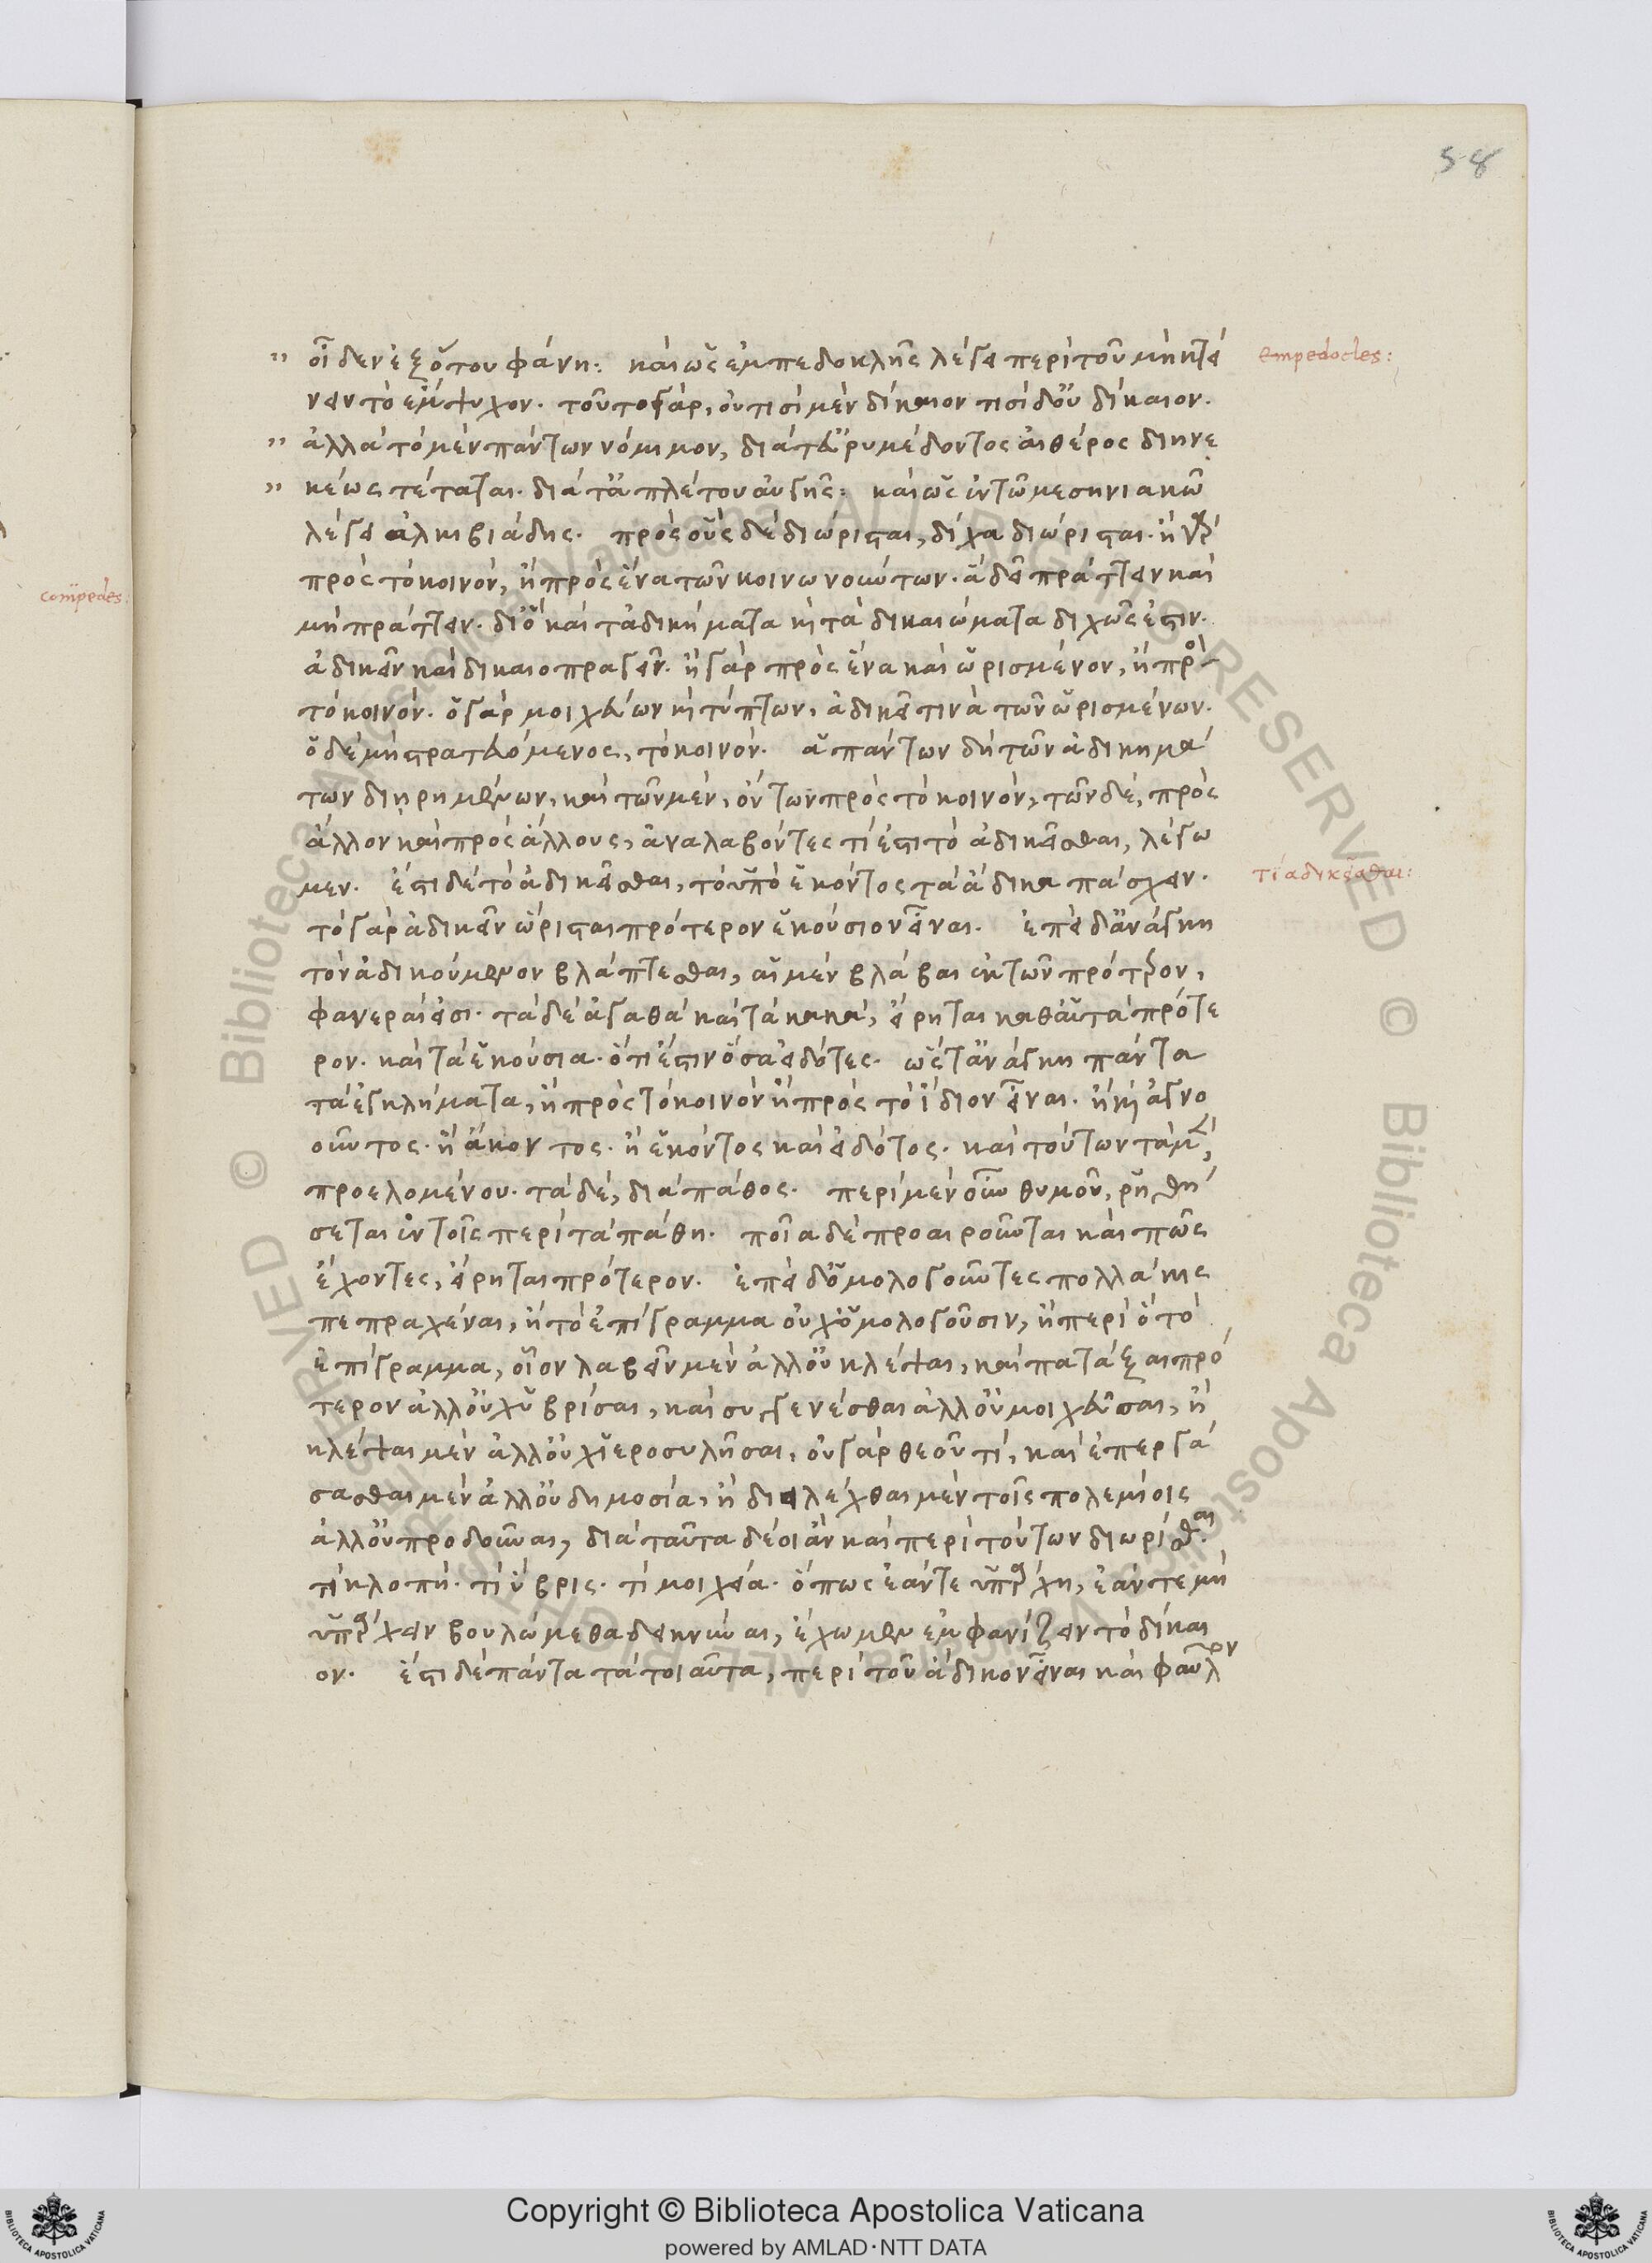 58
οἶδεν ἐξ ὅτου φάνη: καὶ ὡς ἐμπεδοκλῆς λέγει περὶ τοῦ μὴ κτεί
empedocles:
νειν τὸ ἔμψυχον. τοῦτο γὰρ, οὐ τισὶ μὲν δίκαιον τισὶ δ' οὐ δίκαιον.
ἀλλὰ τὸ μὲν πάντων νόμιμον, διά τ' εὐρυμέδοντος αἰθέρος διηνε
κέως τέταται. διά τ' ἀπλέτου αὐγῆς: καὶ ὡς ἐν τῷ μεσηνιακῷ
λέγει ἀλκιβιάδης. πρὸς οὓς δὲ διώρισται, δίχα διώρισται. ἢ γὰρ
πρὸς τὸ κοινὸν, ἢ πρὸς ἕνα τῶν κοινωνούντων. ἃ δεῖ πράττειν καὶ
compedes:
μὴ πράττειν. διὸ καὶ τἀδικήματα καὶ τὰ δικαιώματα διχῶς ἐστιν.
ἀδικεῖν καὶ δικαιοπραγεῖν. ἢ γὰρ πρὸς ἕνα καὶ ὡρισμένον, ἢ πρὸς
τὸ κοινόν. ὁ γὰρ μοιχεύων καὶ τύπτων, ἀδικεῖ τινὰ τῶν ὡρισμένων.
ὁ δὲ μὴ στρατευόμενος, τὸ κοινόν. ἁπάντων δὴ τῶν ἀδικημά
των διῃρημένων, καὶ τῶν μὲν, ὄντων πρὸς τὸ κοινὸν, τῶν δὲ, πρὸς
ἄλλον καὶ πρὸς ἄλλους, ἀναλαβόντες τί ἐστι τὸ ἀδικεῖσθαι, λέγω
μεν. ἔστι δὲ τὸ ἀδικεῖσθαι, τὸ ὑπὸ ἑκόντος τὰ ἄδικα πάσχειν.
τί αδικεῖσθαι:
τὸ γὰρ ἀδικεῖν ὥρισται πρότερον ἑκούσιον εἶναι. ἐπεὶ δ' ἀνάγκη
τὸν ἀδικούμενον βλάπτεσθαι, αἱ μὲν βλάβαι ἐκ τῶν πρότερον,
φανεραί εἰσι. τὰ δὲ ἀγαθὰ καὶ τὰ κακὰ, εἴρηται καθ' αὑτὰ πρότε
ρον. καὶ τὰ ἑκούσια. ὅτι ἔστιν ὅσα εἰδότες. ὥστ' ἀνάγκη πάντα
τὰ ἐγκλήματα, ἢ πρὸς τὸ κοινὸν ἢ πρὸς τὸ ἴδιον εἶναι. ἢ καὶ ἀγνο
οῦντος. ἢ ἄκοντος. ἢ ἑκόντος καὶ εἰδότος. καὶ τούτων τὰ μὲν,
προελομένου. τὰ δὲ, διὰ πάθος. περὶ μὲν οὖν θυμοῦ, ῥηθή
σεται ἐν τοῖς περὶ τὰ πάθη. ποῖα δὲ προαιροῦνται καὶ πῶς
ἔχοντες, εἴρηται πρότερον. ἐπεὶ δ' ὁμολογοῦντες πολλάκις
πεπραχέναι, ἢ τὸ ἐπίγραμμα οὐχ ὁμολογοῦσιν, ἢ περὶ ὃ τὸ
ἐπίγραμμα, οἷον λαβεῖν μὲν ἀλλ' οὐ κλέψαι, καὶ πατάξαι πρό
τερον ἀλλ' οὐχ ὑβρίσαι, καὶ συγγενέσθαι ἀλλ' οὐ μοιχεῦσαι, ἢ
κλέψαι μὲν ἀλλ' οὐχ ἱεροσυλῆσαι, οὐ γὰρ θεοῦ τί, καὶ ἐπεργά
σασθαι μὲν ἀλλ' οὐ δημοσία, ἢ διειλέχθαι μὲν τοῖς πολεμίοις
ἀλλ' οὐ προδοῦναι, διὰ ταῦτα δέοι ἂν καὶ περὶ τούτων διωρίσθαι
τί κλοπή. τί ὕβρις. τί μοιχεία. ὅπως ἐάντε ὑπάρχη, ἐάντε μὴ
ὑπάρχειν βουλώμεθα δεικνύναι, ἔχωμεν ἐμφανίζειν τὸ δίκαι
ον. ἔστι δὲ πάντα τὰ τοιαῦτα, περὶ τοῦ ἄδικον εἶναι καὶ φαῦλον
© Biblioteca Apostolica Vaticana ALL RIGHTS RESERVED © Biblioteca Apostolica Vaticana ALL RIGHTS RESERVED
Copyright © Biblioteca Apostolica Vaticana
powered by AMLAD·NTT DATA
BIBLIOTECA APOSTOLICA VATICANA
BIBLIOTECA APOSTOLICA VATICANA